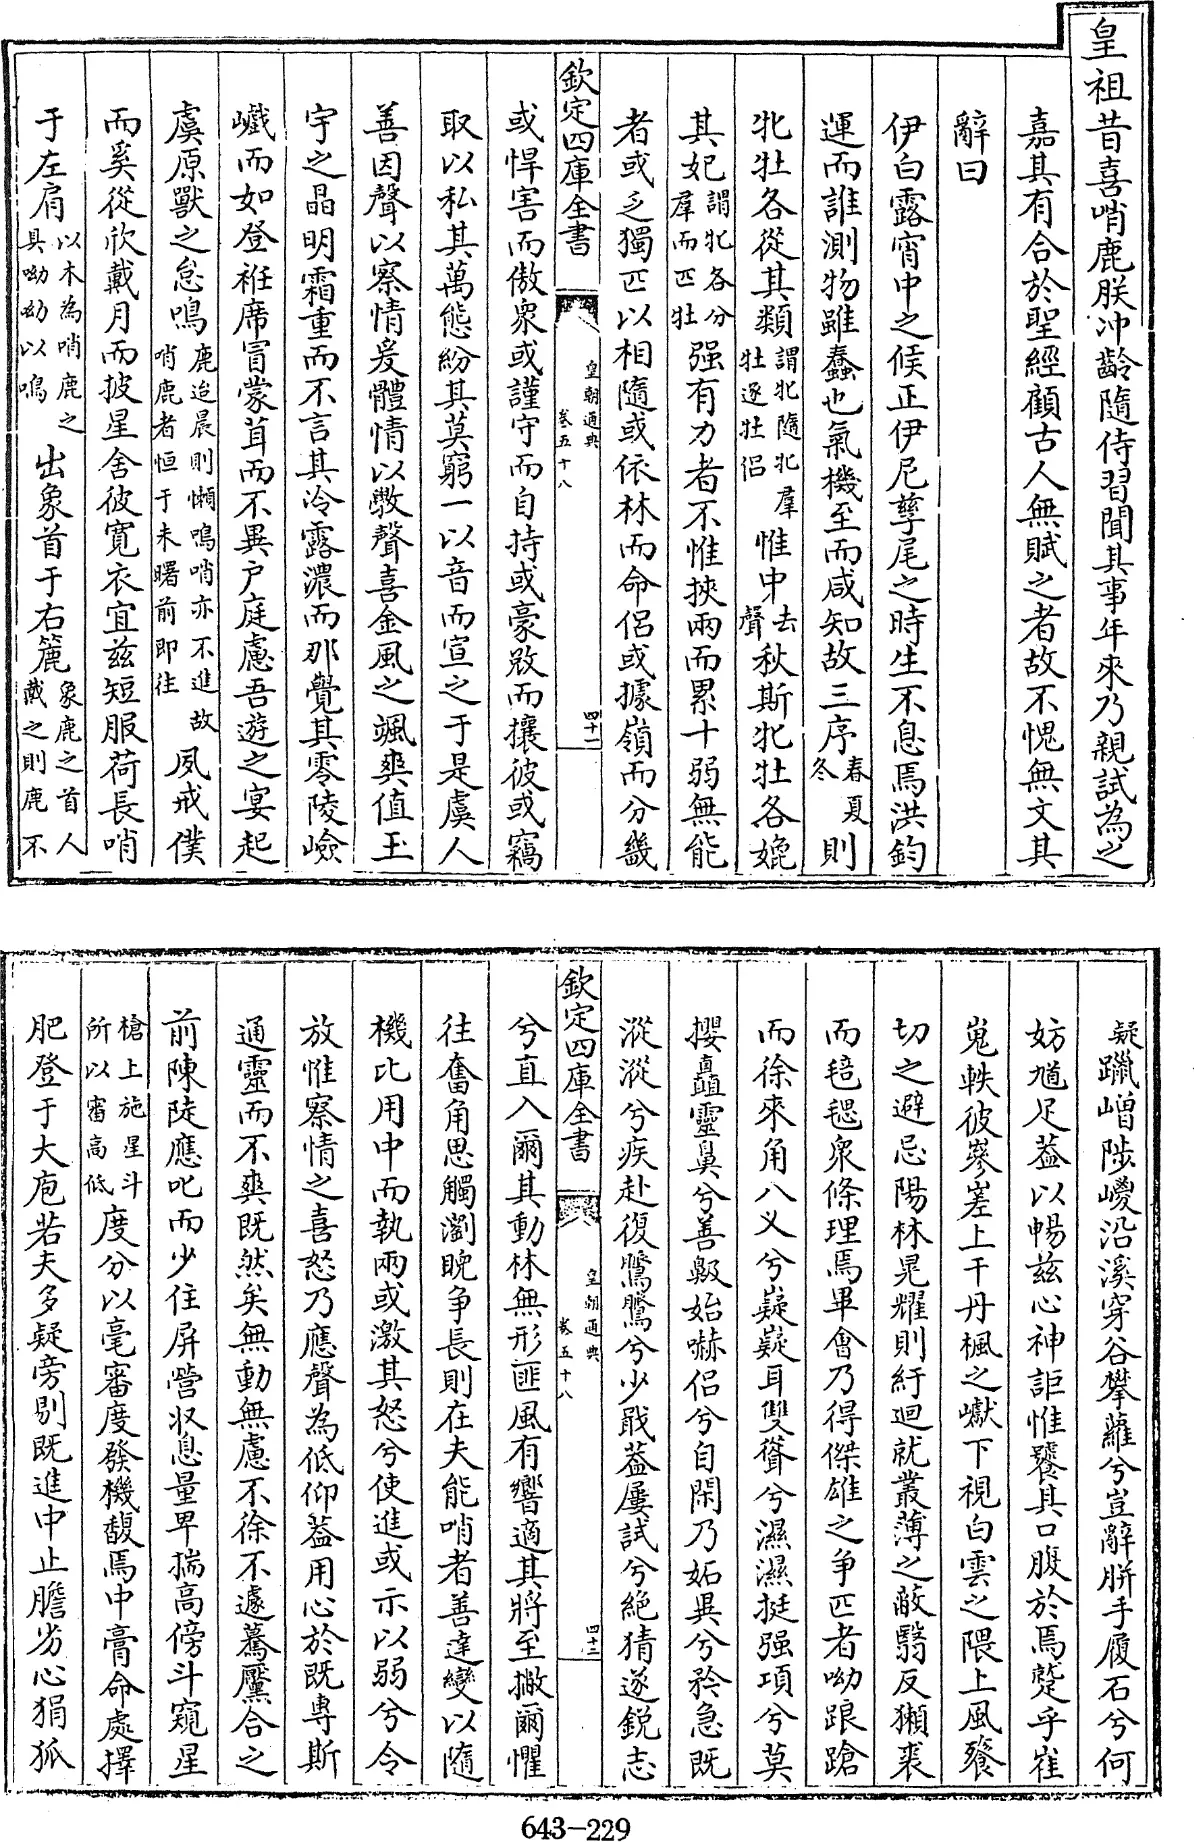 皇祖昔喜哨鹿朕沖齡隨侍習聞其事年來乃親試為之
嘉其有合於聖經顧古人無賦之者故不愧無文其
辭曰
伊白露宵中之候正伊尼孳尾之時生不息焉洪鈞
運而誰測物雖蠢也氣機至而咸知故三序春夏冬則
牝牡各從其類謂牝隨牝羣牡逐牡侣惟中去聲秋斯牝牡各媲
其妃謂牝各分羣而匹牡强有力者不惟挾兩而累十弱無能
者或乏獨匹以相隨或依林而命侣或據嶺而分畿
欽定四庫全書
皇朝通典
卷五十八
四十一
或悍害而傲衆或謹守而自持或豪敚而攘彼或竊
取以私其萬態紛其莫窮一以音而宣之于是虞人
善因聲以察情爰體情以斆聲喜金風之颯爽值玉
宇之晶明霜重而不言其冷露濃而那覺其零陵嶮
巇而如登袵席冒蒙茸而不異户庭慮吾遊之宴起
虞原獸之怠鳴鹿迨晨則懶鳴哨亦不進故哨鹿者恒于未曙前即往夙戒僕
而奚從欣戴月而披星舍彼寛衣宜兹短服荷長哨
于左肩以木為哨鹿之具呦呦以鳴出象首于右簏象鹿之首人戴之則鹿不
疑躐嶒陟㟪沿溪穿谷攀蘿兮豈辭胼手履石兮何
妨䠆足葢以暢兹心神詎惟饔其口腹於焉蹵乎崔
嵬軼彼嵾嵳上干丹楓之巘下視白雲之隈上風發
切之避忌陽林晃耀則紆迴就叢薄之蔽翳反獺裘
而毰毸衆條理焉畢會乃得傑雄之争匹者呦踉蹌
而徐來角八义兮嶷嶷耳雙聳兮濕濕挺强項兮莫
攖贔靈臭兮善齅始嚇侣兮自閑乃妬異兮矜急既
漎漎兮疾赴復騰騰兮少戢葢屢試兮絶猜遂鋭志
欽定四庫全書
皇朝通典
卷五十八
四十二
兮直入爾其動林無形匪風有響適其將至撇爾懼
往奮角思觸瀏睆争長則在夫能哨者善達變以隨
機比用中而執兩或激其怒兮使進或示以弱兮令
放惟察情之喜怒乃應聲為低仰葢用心於既專斯
通靈而不爽既然矣無動無慮不徐不遽驀黶合之
前陳陡應叱而少住屏營収息量卑揣高傍斗窺星
槍上施星斗所以審高低度分以毫審度發機馥焉中膏命處擇
肥登于大庖若夫多疑旁剔既進中止膽劣心狷狐
643-229